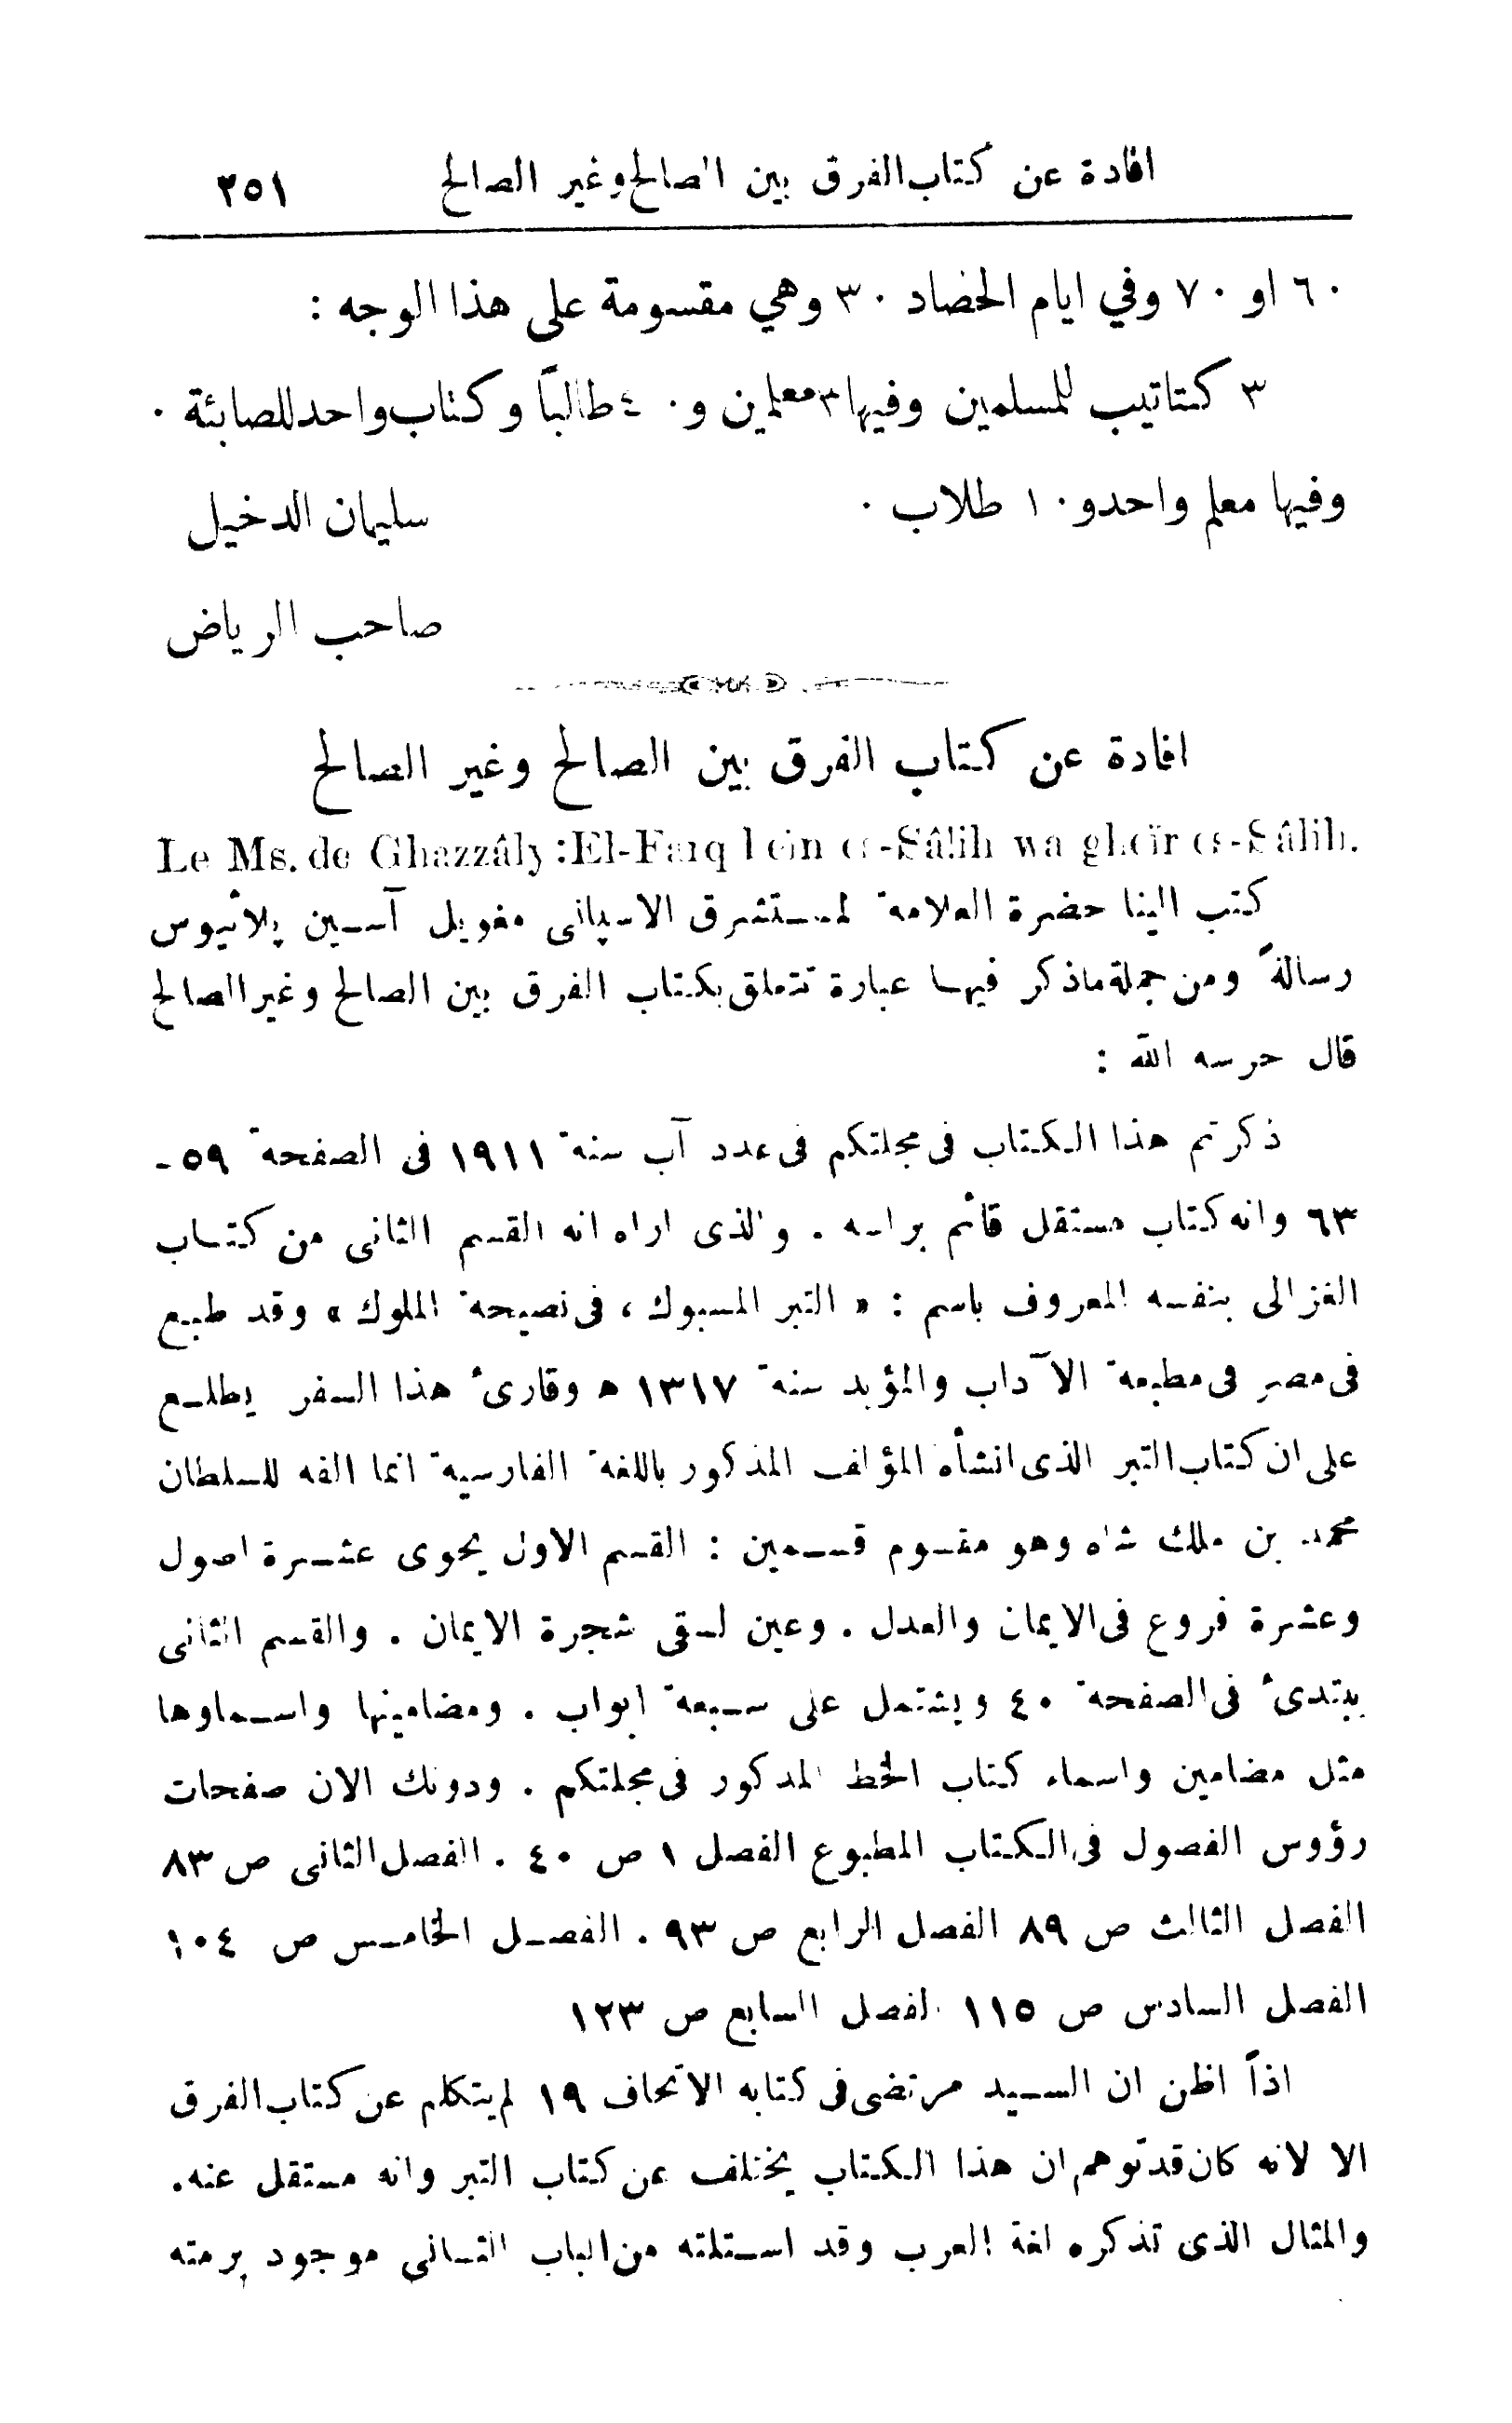 افادة عن كتاب الفرق بين الصالح وغير الصالح ٣٥١
٦٠ او ٧٠ وفي ايام الحضاد ٣٠ وهي مقسومة على هذا الوجه :
٣ كتاتيب للمسلمين وفيها ٣ معلمين و٤٠ طالبًا وكتاب واحد للصابئة ٠
وفيها معلم واحد و١٠ طلاب ٠ سليمان الدخيل
صاحب الرياض
افادة عن كتاب الفرق بين الصالح وغير الصالح
Le Ms. de Ghazzâly : El-Farq bein es-Sâlih wa gheïr es-Sâlih.
كتب الينا حضرة العلامة المستشرق الاسپانى مغويل آسين پلاثيوس
رسالةً ومن جملة ماذكر فيها عبارة تتعلق بكتاب الفرق بين الصالح وغير الصالح
قال حرسه الله :
ذكرتم هذا الكتاب فى مجلتكم فى عدد آب سنة ١٩١١ فى الصفحة ٥٩ -
٦٣ وانه كتاب مستقل قائم براسه . والذى اراه انه القسم الثانى من كتاب
الغزالى بنفسه المعروف باسم : « التبر المسبوك ، فى نصيحة الملوك » وقد طبع
فى مصر فى مطبعة الآداب والمؤيد سنة ١٣١٧ ه وقارئ هذا السفر يطلع
على ان كتاب التبر الذى انشأه المؤلف المذكور باللغة الفارسية انما الفه للسلطان
محمد بن ملك شاه وهو مقسوم قسمين : القسم الاول يحوى عشرة اصول
وعشرة فروع فى الايمان والعدل . وعين لسقى شجرة الايمان . والقسم الثانى
يبتدئ فى الصفحة ٤٠ ويشتمل على سبعة ابواب . ومضامينها واسماوها
مثل مضامين واسماء كتاب الخط المذكور فى مجلتكم . ودونك الان صفحات
رؤوس الفصول فى الكتاب المطبوع الفصل ١ ص ٤٠ . الفصل الثانى ص ٨٣
الفصل الثالث ص ٨٩ الفصل الرابع ص ٩٣ . الفصل الخامس ص ١٠٤
الفصل السادس ص ١١٥ الفصل السابع ص ١٢٣
اذاً اظن ان السيد مرتضى فى كتابه الاتحاف ١٩ لم يتكلم عن كتاب الفرق
الا لانه كان قد توهم ان هذا الكتاب يختلف عن كتاب التبر وانه مستقل عنه.
والمثال الذى تذكره لغة العرب وقد استلته من الباب الثانى موجود برمته